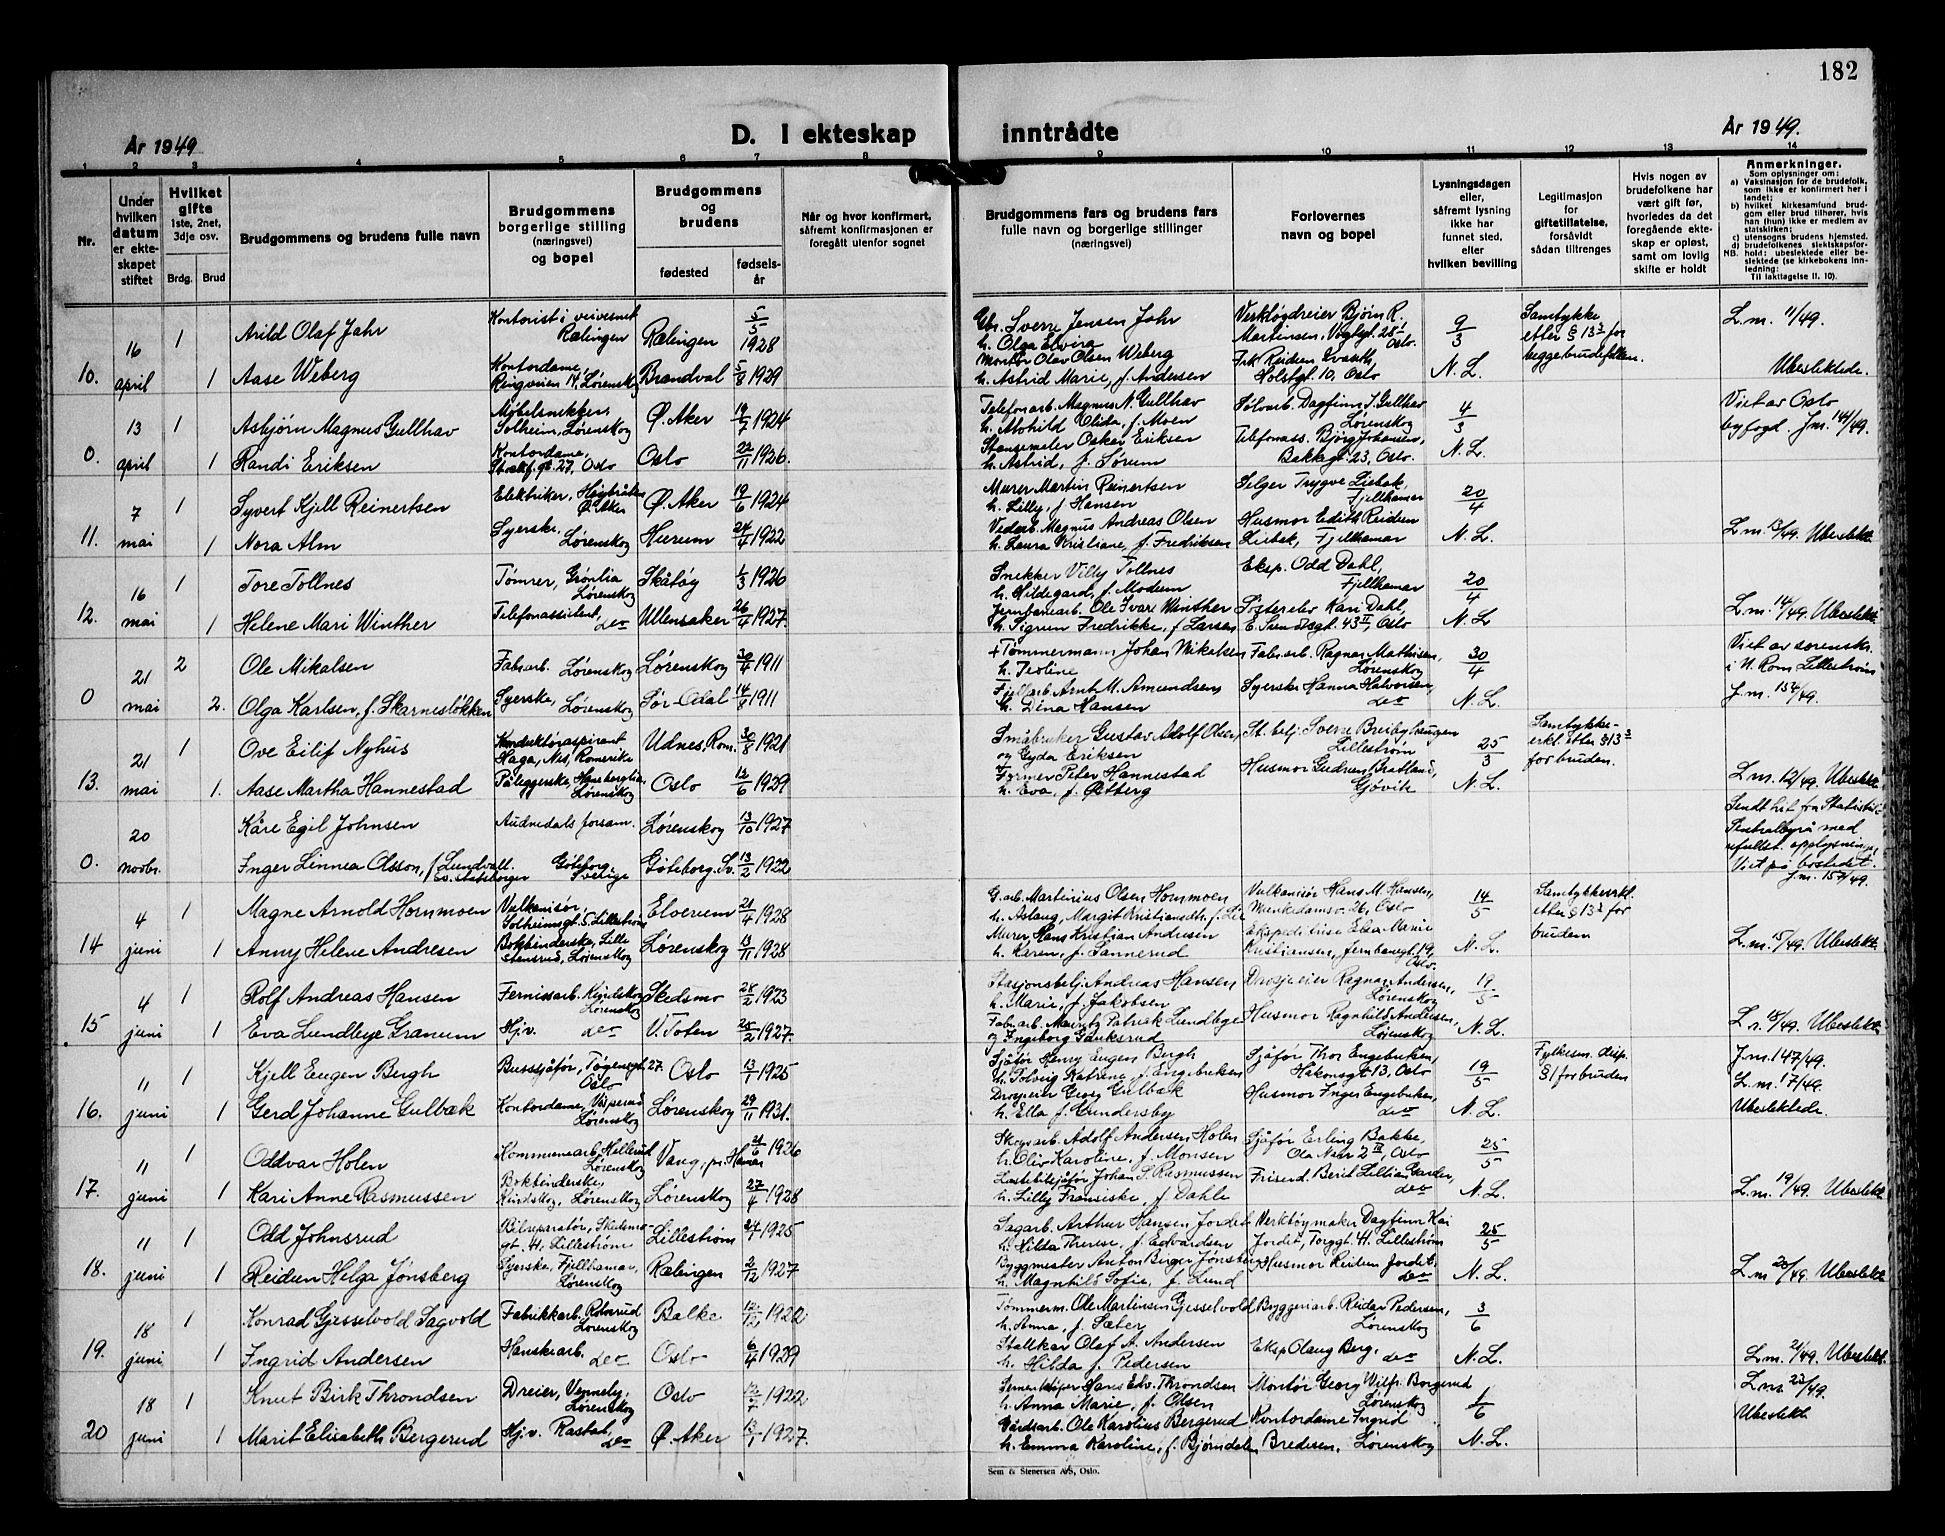 182
År 1949
D. I ekteskap inntrådte
År 1949.
1 2 3 4 5 6 7 8 9 10 11 12 13 14
Nr.
Under hvilken datum er ekteskapet stiftet
Hvilket gifte 1ste, 2net, 3dje osv.
Brdg. Brud
Brudgommens og brudens fulle navn
Brudgommens borgerlige stilling (næringsvei) og bopel
Brudgommens og brudens
fødested
fødselsår
Når og hvor konfirmert, såfremt konfirmasjonen er foregått utenfor sognet
Brudgommens fars og brudens fars fulle navn og borgerlige stillinger (næringsvei)
Forlovernes navn og bopel
Lysningsdagen eller, såfremt lysning ikke har funnet sted, efter hvilken bevilling
Legitimasjon for giftetillatelse, forsåvidt sådan tiltrenges
Hvis nogen av brudefolkene har vært gift før, hvorledes da det foregående ekteskap er opløst, samt om lovlig skifte er holdt
Anmerkninger.
Som oplysninger om:
a) Vaksinasjon for de brudefolk, som ikke er konfirmert her i landet;
b) hvilket kirkesamfund brudgom eller brud tilhører, hvis han (hun) ikke er medlem av statskirken;
c) utensogns brudens hjemsted.
d) brudefolkenes slektskapsforhold: ubeslektede eller beslektede (se kirkebokens innledning:
NB. Til Iakttagelse II. 10).
16 1 Arild Olaf Jahr Kontorist i veivesnet Rælingen Rælingen 5/5 1928
Gbr. Sverre Jensen Jahr h. Olga Elvira Verktøydreier Bjørn R. Martinsen, Oslo. 9/3 Samtykke etter § 13 3 for begge brudefolkene. L.m. 11/49.
10. april 1 Aase Weberg Kontordame, Ringveien 14, Lørenskog Brandval 5/8 1929
Montør Olav Olsen Weberg h. Astrid Marie, f. Andersen Holstgt. 10, Oslo N.L. Ubeslektede.
13 1 Asbjørn Magnus Gullhav Møbelsnekker, Solheim, Lørenskog Ø. Aker 1924
Telefonarb. Magnus N. Gullhav f. Moen Sølvarb. Dagfinn S. Gullhav Lørenskog 4/3 Viet av Oslo byfogd. J.m. 141/49.
0. april 1 Randi Eriksen Kontordame, Oslo Oslo 22/11 1926.
Stansemaler Oskar Eriksen h. Astrid, f. Sørum Telefonass. Bjørg Johansen, Bakkegt. 23, Oslo. N.L.
7 1 Syvert Kjell Reinertsen Elektriker, Høybråten Ø. Aker Ø. Aker 19/6 1924
Murer Martin Reinertsen h. Lilly, f. Hansen Selger Trygve Liebek, Fjellhamar 20/4
11. mai 1 Nora Alm Syerske, Lørenskog Hurum 24/4 1922
Vedarb. Magnus Andreas Olsen h. Laura Kristiane, f. Fredriksen Husmor Edith Reidun Liebek, Fjellhamar N.L. L.m. 13/49. Ubeslekt.
16 1 Tore Tollnes Tømrer, Grønlia Lørenskog Skåtøy 1/3 1926
Snekker Villy Tollnes h. Hildegard, f. Modum Eksp. Odd Dahl, Fjellhamar 20/4
12. mai 1 Helene Mari Winther Telefonassistent, do Ullensaker 26/4 1927.
Jernbanearb. Ole Ivare Winther h. Sigrun Fredrikke, f. Larsen Søsterelev Kari Dahl, 43 II, Oslo N.L. L.m. 14/49. Ubeslekt.
21 2 Ole Mikalsen Fabr.arb. Lørenskog Lørenskog 30/4 1911
+ Tømmermann Johan Mikalsen h. Teoline Fabr.arb. Ragnar Mathisen, Lørenskog 30/4 Viet av sorenskr. i N. Rom. Lillestrøm
0 mai 2. Olga Karlsen, f. Skarnesløkken Syerske, Lørenskog Sør-Odal 14/8 1911
Arnt M. Amundsen h. Dina Hansen Syerske Hanna Halvorsen, do N.L. J.m. 154/49.
21 1 Ove Eilif Nyhus Konduktøraspirant Haga, Nes, Romerike Udnes, Rom. 30/8 1921
Småbruker Gustav Adolf Olsen, og Gyda Eriksen St.betj. Sverre Breibyhaugen Lillestrøm 25/3 Samtykke-erkl. etter §13 3 for bruden.
13. mai 1. Aase Martha Hannestad Påleggerske, Lørenskog Oslo 12/6 1929
Former Peter Hannestad h. Eva, f. Østberg Husmor Gudrun Bratland, Gjøvik N.L. L.m. 12/49 Ubeslekt.
20 Kåre Egil Johnsen Audnedals forsam. Lørenskog 13/10 1927
Sendt hit fra Statistisk Sentralbyrå med
0. novbr. Inger Linnea Olsson, f. Lundvall. sv. statsborger Göteborg Sverige Göteborg, Sv. 13/2 1922
Viet på bostedet. J.m. 157/49.
4 1 Magne Arnold Hornmoen Vulkanisør, Solheimsgt. 5, Lillestrøm Elverum 21/4 1928
G.arb. Martinius Olsen Hornmoen h. Aslaug, Margit Kristiansdh. f. Lie Vulkanisør Hans M. Hansen, Munkedamsv. 26, Oslo 14/5 Samtykkeerkl. etter §13 2 for bruden
14 juni 1 Anny Helene Andresen Bokbinderske, Lille stensrud, Lørenskog Lørenskog 13/11 1928
Murer Hans Kristian Andresen h. Karen, f. Sannerud Ekspeditrise Elsa Marie Kristiansen, Jernbanegt. 19, Oslo. N.L. L.m. 15/49. Ubeslekt.
4 1 Rolf Andreas Hansen Fernissarb. Lørenskog Skedsmo 28/2 1923
Stasjonsbetj. Andreas Hansen h. Marie, f. Jakobsen Drosjeeier Ragnar Andersen, Lørenskog 19/5
15 juni 1 Eva Lundbye Granum Hjv. do V. Toten 25/2 1927.
Fabr.arb. Mauritz Patrick Lundbye og Ingeborg Gauksrud Husmor Ragnhild Andersen, Lørenskog N.L. 18/49 Ubeslekt.
11 1 Kjell Eugen Bergh Bussjåfør, Tøyengt. 27. Oslo Oslo 13/1 1925
Sjåfør Henry Eugen Bergh h. Solveig Katrine, f. Engebretsen Sjåfør Thor Engebretsen, Håkonsgt. 13, Oslo 19/5 Fylkesm. disp. §1 for bruden J.m. 147/49. L.m. 17/49.
16. juni 1 Gerd Johanne Gulbæk Kontordame, Lørenskog Lørenskog 29/11 1931.
Drosjeeier Georg Gulbæk h. Ella f. Gundersby Husmor Inger Engebretsen, do N.L. Ubeslektede.
11 1 Oddvar Holen Kommunearb. Hellerud Lørenskog Vang, pr. Hamar 21/6 1926
Skogsarb. Adolf Andersen Holen h. Oliv Karoline, f. Monsen Sjåfør Erling Bakke, Oslo 25/5
17. juni 1 Kari Anne Rasmussen Bokbinderske, Lørenskog Lørenskog 27/4 1928
Lastebilsjåfør Johan S. Rasmussen h. Lilly Franciske, f. Dahle Friserd. Berit Lillian Garder, do N.L. L.m. 19/49. Ubeslekt.
11 1 Odd Johnsrud Bilreparatør, Skedsmogt. 41, Lillestrøm Lillestrøm 24/7 1925
Sagarb. Arthur Hansen Jordet h. Hilda Therese, f. Edvardsen Verktøymaker Dagfinn Kai Jordet, Torggt. 41. Lillestrøm 25/5
18. juni 1 Reidun Helga Jønsberg Syerske, Fjellhamar, Lørenskog Rælingen 2/12 1927
Byggmester Anton Birger Jønsberg h. Magnhild Sofie, f. Lund Husmor Reidun Jordet, do N.L. L.m 20/49. Ubeslekt.
18 1 Konrad Gjesselvold Sagvold Fabrikkarb. Lørenskog Balke 12/12 1922
Tømmerm. Ole Martinsen Gjesselvold h. Anna, f. Sæter Byggeriarb. Reidar Pedersen, Lørenskog 3/6
19. juni 1 Ingrid Andersen Hanskearb. do Oslo 6/4 1929
Stallkar Olaf A. Andersen h. Hilda f. Pedersen Eksp Olaug Berg, do N.L. L.m. 21/49. Ubeslekt.
18 1 Knut Birk Throndsen Dreier, Venneby, Lørenskog Oslo 12/7 1922
Hans Edv. Throndsen h. Anna Marie, f. Olsen Montør Georg Wilfr. Borgerud Lørenskog 1/6 L.m 23/49.
20 juni 1 Marit Elisabeth Bergerud Hjv. Rastad, do Ø. Aker 13/1 1927.
Gårdsarb. Ole Karolius Bergerud h. Emma Karoline, f. Bjørndalen Kontordame Ingrid Bredesen, Lørenskog N.L. Ubeslekt.
Sem & Stenersen A/S, Oslo.